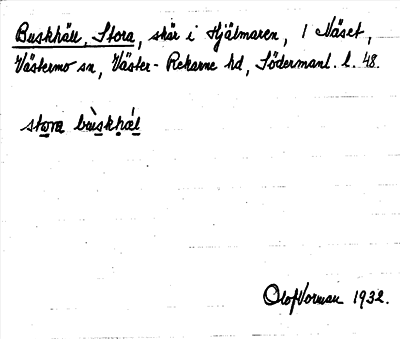 Buskhäll, Stora, skär i Hjälmaren, 1 Näset,
Västermo sn, Väster-Rekarne hd, Södermanl. l. 48.
stora bùskhæl
Olof Vorman 1932.